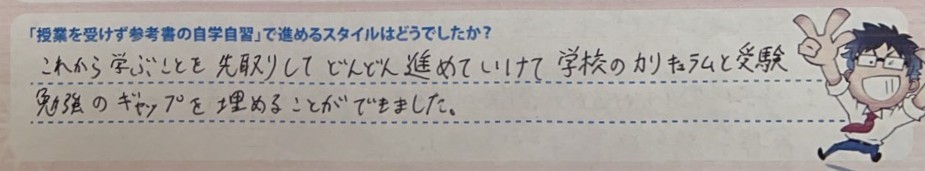 「授業を受けず参考書の自学自習」で進めるスタイルはどうでしたか?
これから学ぶことを先取りしてどんどん進めていけて学校のカリキュラムと受験
勉強のギャップを埋めることができました。